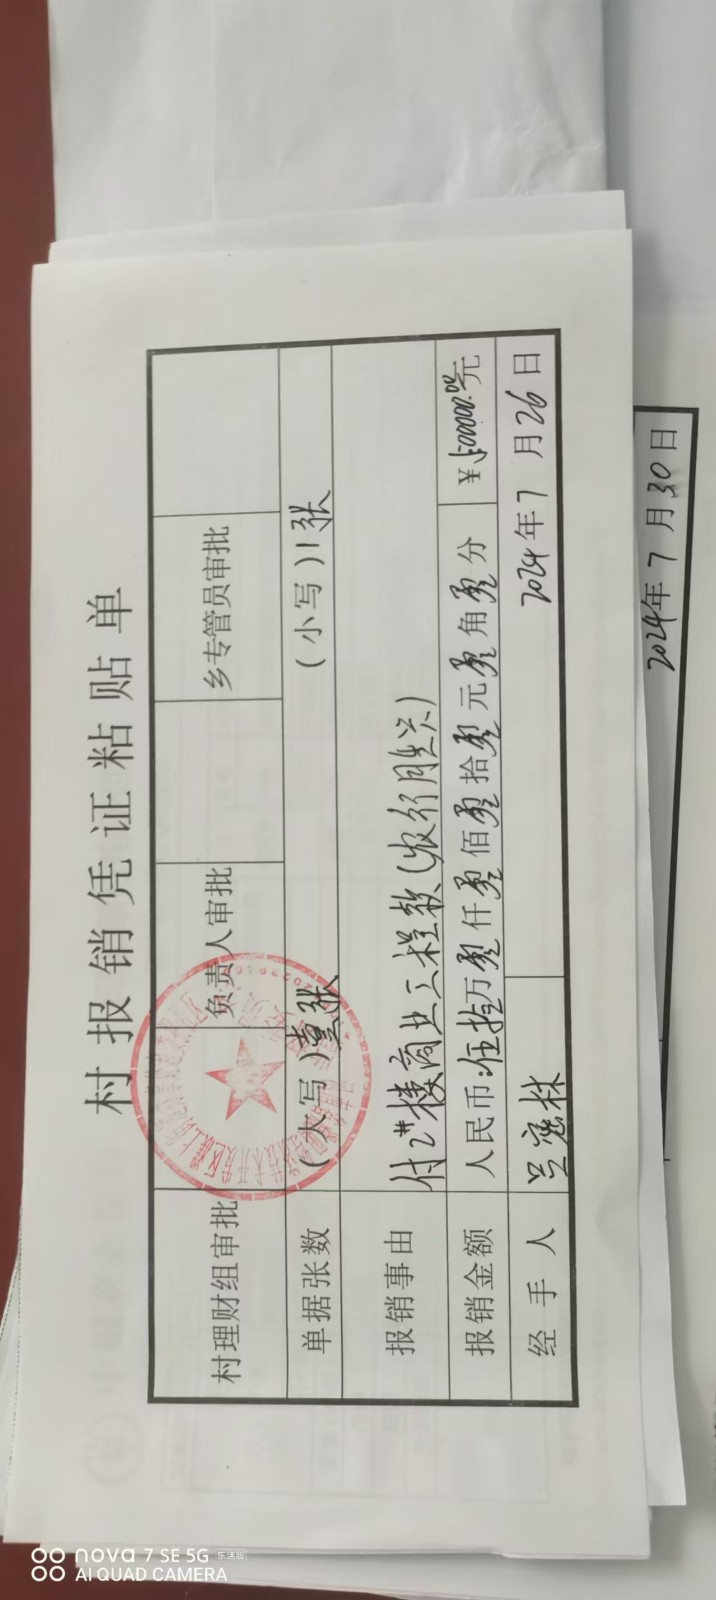 村报销凭证粘贴单
村理财组审批 负责人审批 乡专管员审批
单据张数 (大写)壹张 (小写)1张
报销事由 付2#楼商业工程款(农行
报销金额 人民币:伍拾万零仟零佰零拾零元零角零分 ¥500000.00元
经手人 2024年7月26日
2024年7月30日
nova 7 SE 5G 乐活版
AI QUAD CAMERA